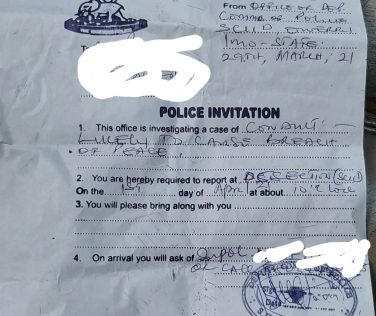 From OFFICE OF DEP.
COMM OF POLICE
SCIID, OWERRI
IMO-STATE
29TH, MARCH, 21
To
POLICE INVITATION
1. This office is investigating a case of CONDUCT
LIKELY TO CAUSE BREACH
OF PEACE
2. You are hereby required to report at D8 SECTION SCIID
On the 1ST day of April 21 at about 10'o clock
3. You will please bring along with you
4. On arrival you will ask of
Date